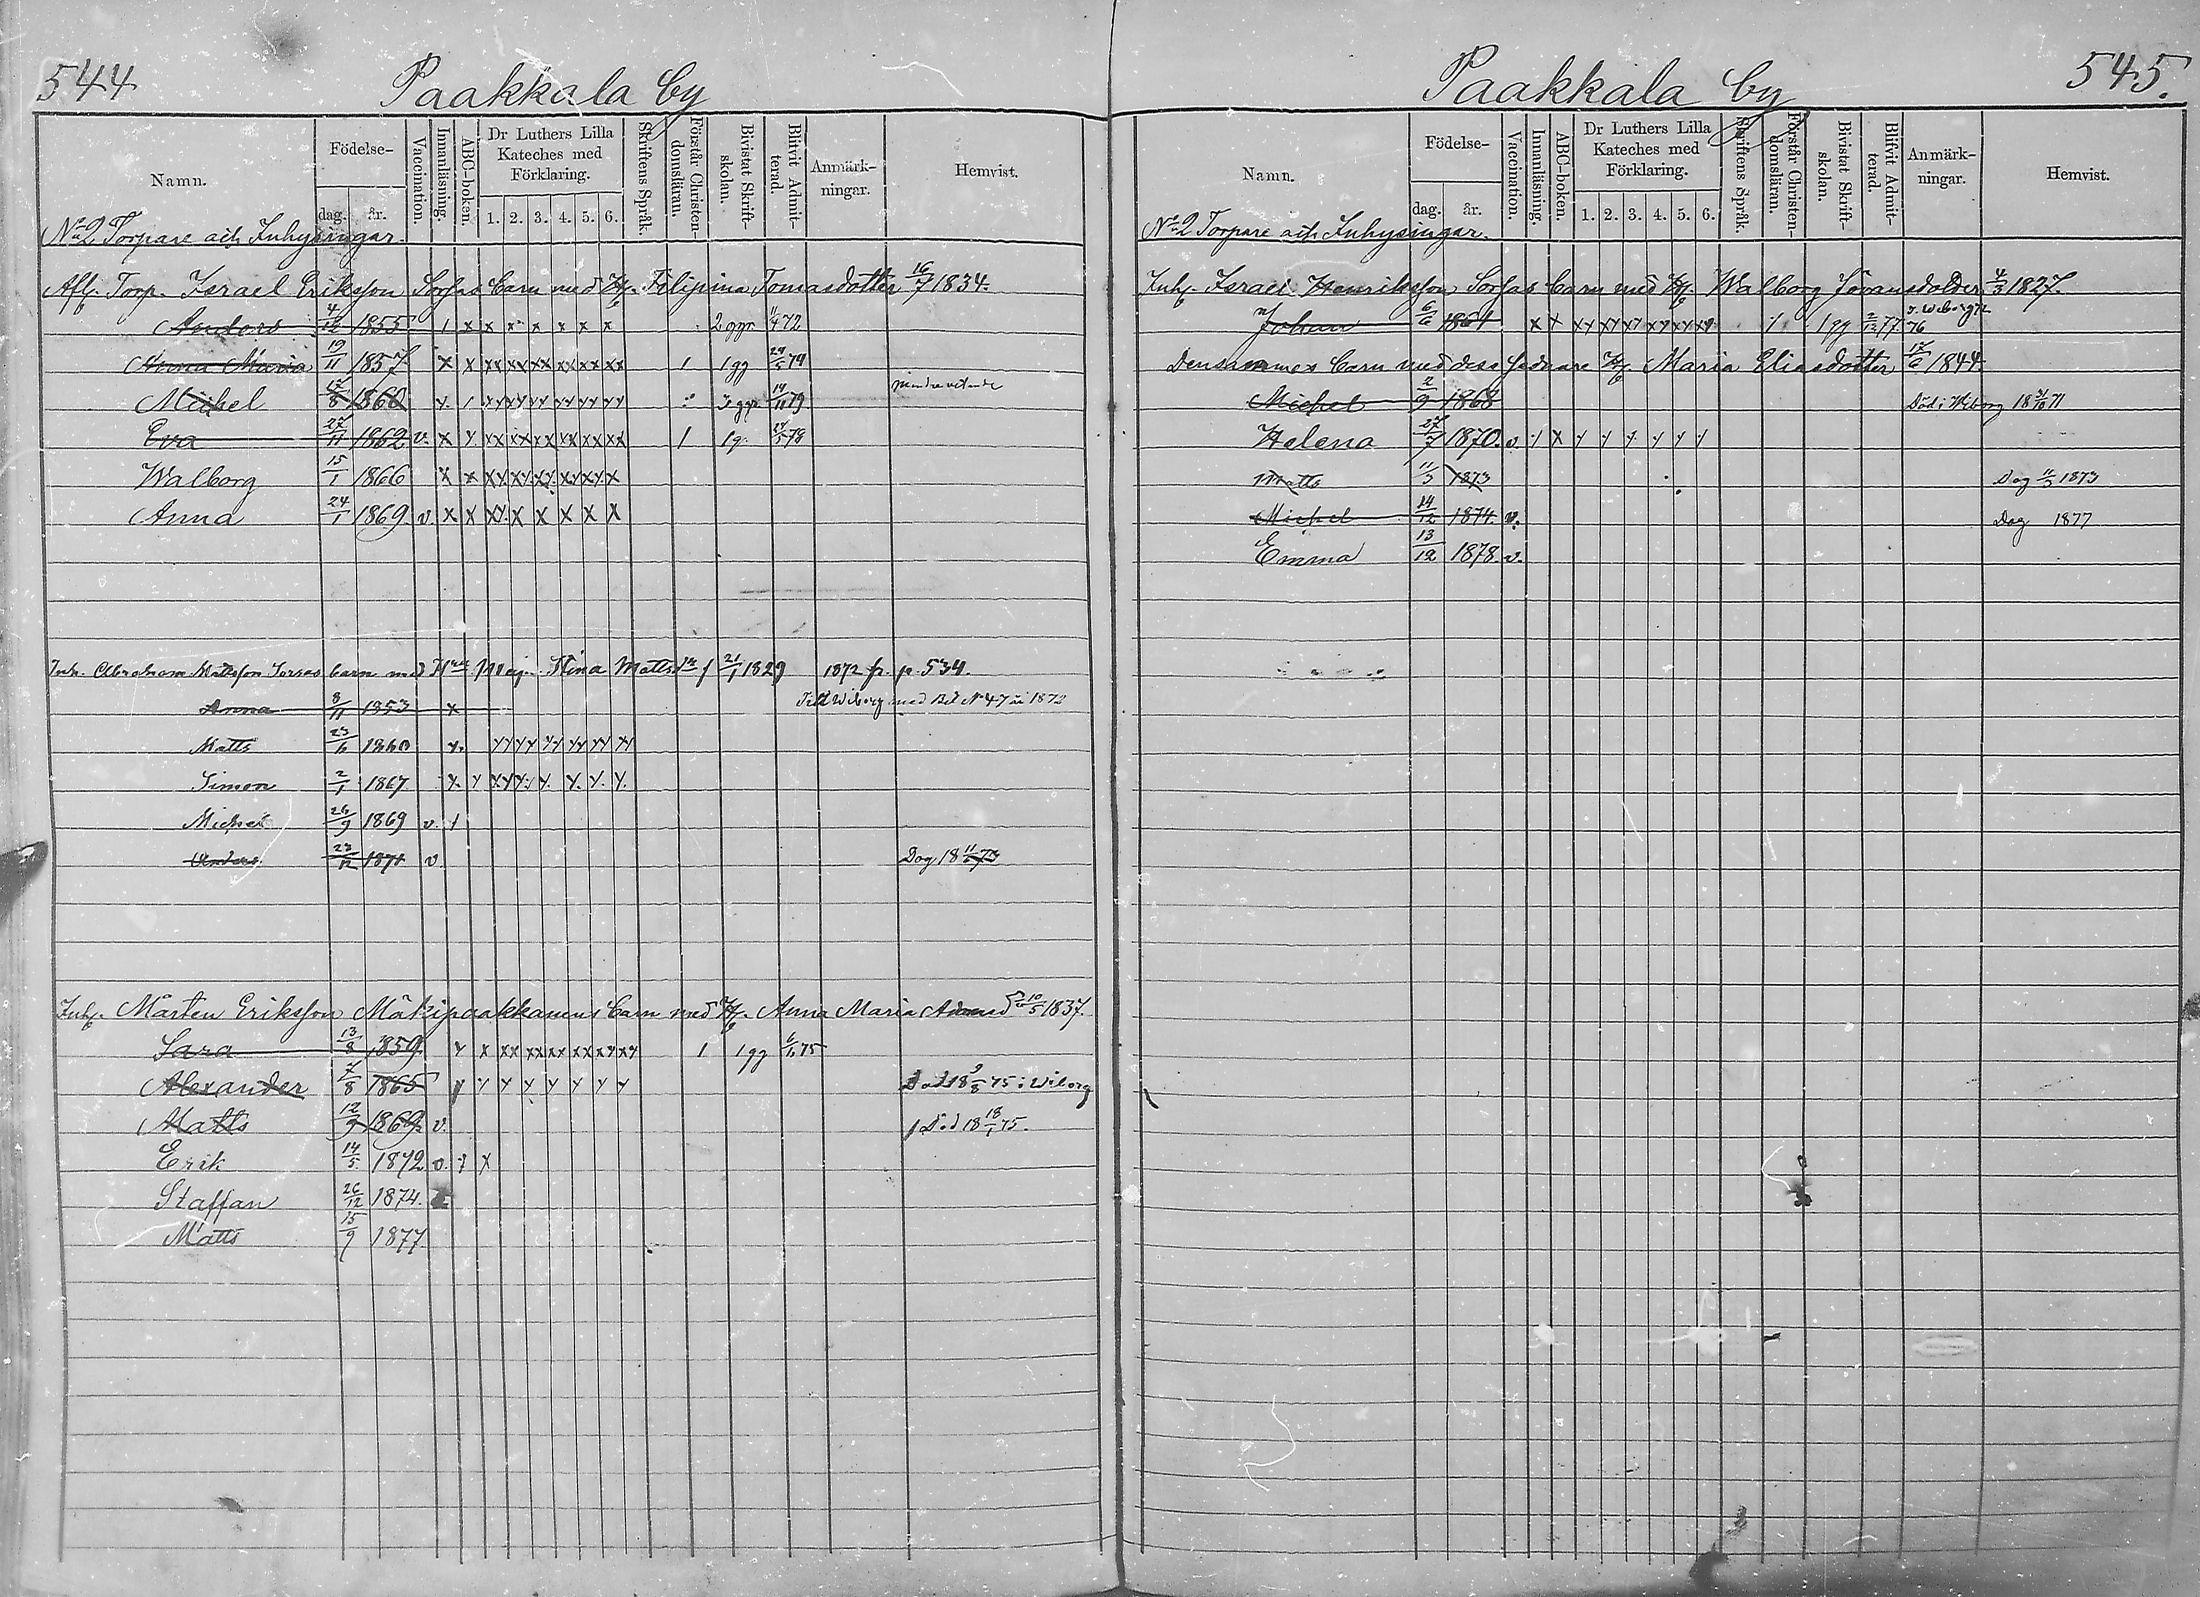 544
Paakkala by
Namn. Födelse- dag. år. Vaccination. Innanläsning. ABC-boken. Dr Luthers Lilla Kateches med Förklaring. 1. 2. 3. 4. 5. 6. Skriftens Språk. Förstår Christendomsläran. Bivistat Skriftskolan. Blifvit Admitterad. Anmärkningar. Hemvist.
No 2 Torpare och Inhysingar.
Afl. Torp. Israel Eriksson Sorsas barn med H. Filipina Tomasdotter 16/7 1834.
Anders 4/12 1855 1 x x x x x x x 2 ggr 72
Anna Maria 19/11 1857 x x xx xx xx xx xx xx 1 1 gg
Michel 17/8 1860 3 ggr 79
Eva 27/11 1862 v. x 1 1 g. 78
Walborg 15/1 1866 x x
Anna 24/1 1869 v. x x xx x x x x x
Inh. Abraham Mattsson Sorsas barn med Stina Matts 21/1 1829 1872 fr. p. 534.
Anna 8/11 1853 x Till Wiborg med Bet No 47 1872
Matts 23/6 1860
Simon 2/1 1867
Michel 26/9 1869 v. 1
Anders 23/12 1871 v. Dog 18 11/ 73
Inh. Mårten Eriksson Mäkipaakkanens barn med H. Anna Maria 10/5 1837.
Sara 13/8 1859 1 1 gg 75
Alexander 7/8 1865 Död 18 9/8 75 i Wiborg
Matts 12/9 1869 v. Död 18 18/1 75.
Erik 14/5 1872 v. x
Staffan 26/12 1874.
Matts 15/9 1877
545.
Paakkala by
Namn. Födelse- dag. år. Vaccination. Innanläsning. ABC-boken. Dr Luthers Lilla Kateches med Förklaring. 1. 2. 3. 4. 5. 6. Skriftens Språk. Förstår Christendomsläran. Bivistat Skriftskolan. Blifvit Admitterad. Anmärkningar. Hemvist.
No 2 Torpare och Inhysingar.
Inh. Israel Henriksson Sorsas barn med H. Walborg Göransdotter 4/3 1827.
Johan 6/6 1861 1 gg 2/12 77.
Densammes barn med dess sednare H. Maria Eliasdotter 17/6 1844
Michel 2/9 1868 Död i Wiborg 18 /10 71
Helena 27/7 1870. v.
Matts 11/3 1873 Dog 11/3 1873
Michel 14/12 1874. v. Dog 1877
Emma 13/12 1878. v.